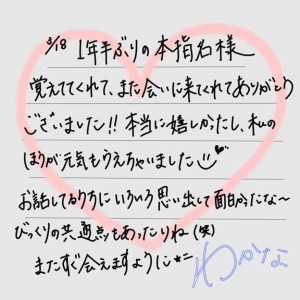 3/18 1年半ぶりの本指名様
覚えててくれて、また会いに来てくれてありがとう
ございました!! 本当に嬉しかったし、私の
ほうが元気もらえちゃいました
お話してるうちにいろいろ思い出して面白かったな〜
びっくりの共通点もあったりねー(笑)
またすぐ会えますように*=
わかな